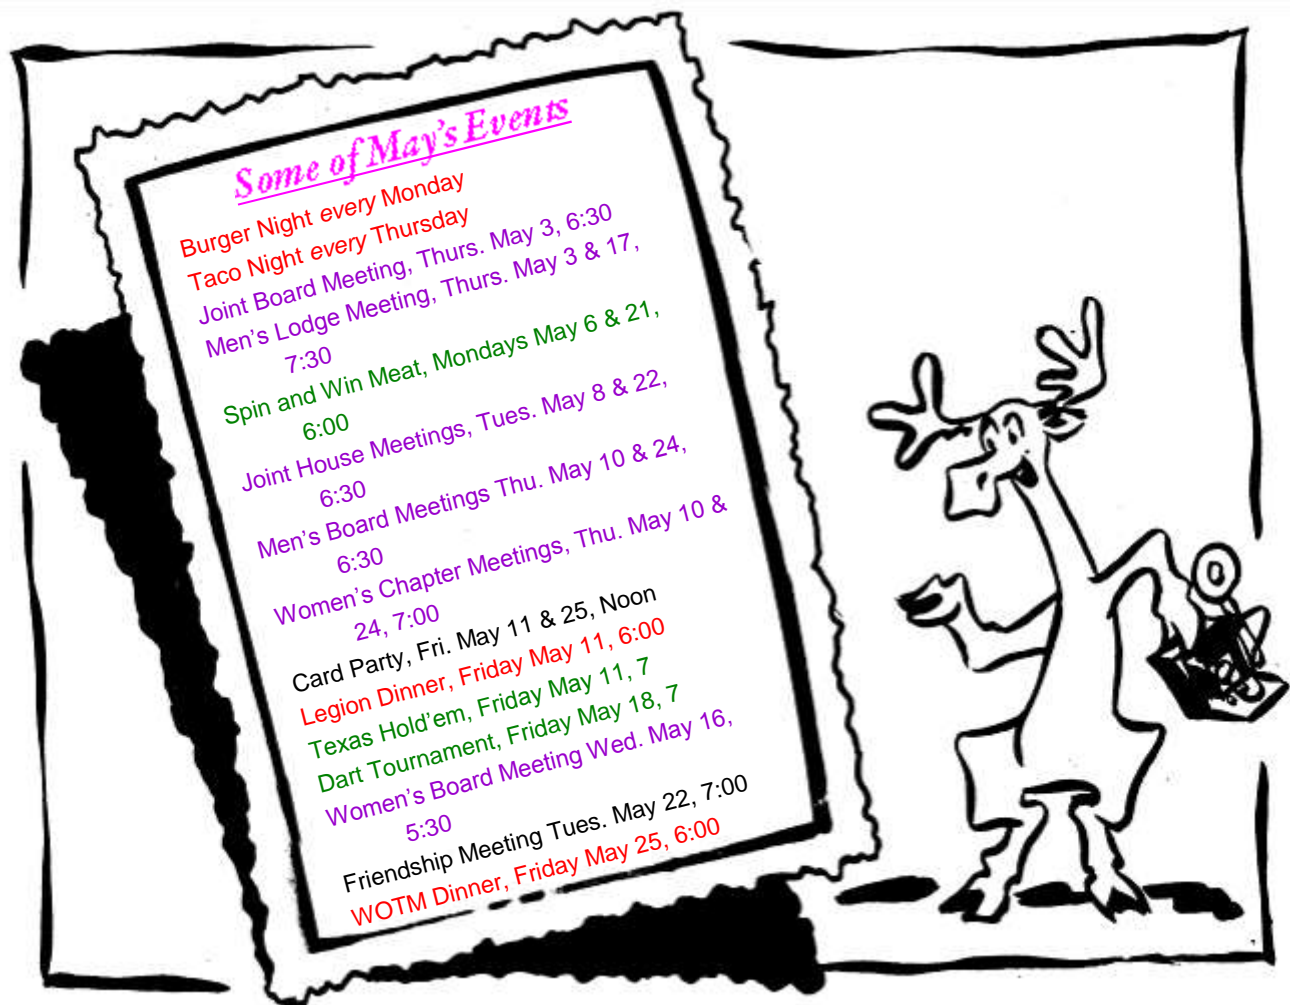 Some of May's Events
Burger Night every Monday
Taco Night every Thursday
Joint Board Meeting, Thurs. May 3, 6:30
Men's Lodge Meeting, Thurs. May 3 & 17,
7:30
Spin and Win Meat, Mondays May 6 & 21,
6:00
Joint House Meetings, Tues. May 8 & 22,
6:30
Men's Board Meetings Thu. May 10 & 24,
6:30
Women's Chapter Meetings, Thu. May 10 &
24, 7:00
Card Party, Fri. May 11 & 25, Noon
Legion Dinner, Friday May 11, 6:00
Texas Hold'em, Friday May 11, 7
Dart Tournament, Friday May 18, 7
Women's Board Meeting Wed. May 16,
5:30
Friendship Meeting Tues. May 22, 7:00
WOTM Dinner, Friday May 25, 6:00